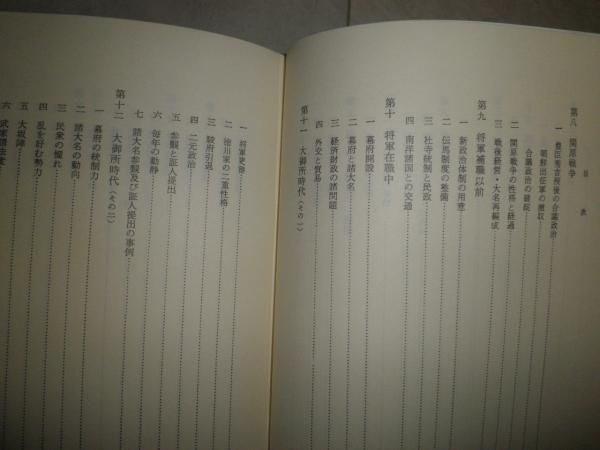 目次
第八 関原戦争
一 豊臣秀吉歿後の合議政治
朝鮮出征軍の撤収
合議政治の破綻
二 関原戦争の性格と経過
三 戦後経営・大名再編成
第九 将軍補職以前
一 新政治体制の用意
二 伝馬制度の整備
三 社寺統制と民政
四 南洋諸国との交通
第十 将軍在職中
一 幕府開設
二 幕府と諸大名
三 経済財政の諸問題
四 外交と貿易
第十一 大御所時代(その一)
一 将軍更迭
二 徳川家の二重性格
三 駿府引退
四 二元政治
五 参覲と証人提出
六 毎年の動静
七 諸大名参覲及び証人提出の事例
第十二 大御所時代(その二)
一 幕府の統制力
二 諸大名の動向
三 民衆の憧れ
四 乱を好む勢力
五 大坂陣
六 武家諸法度